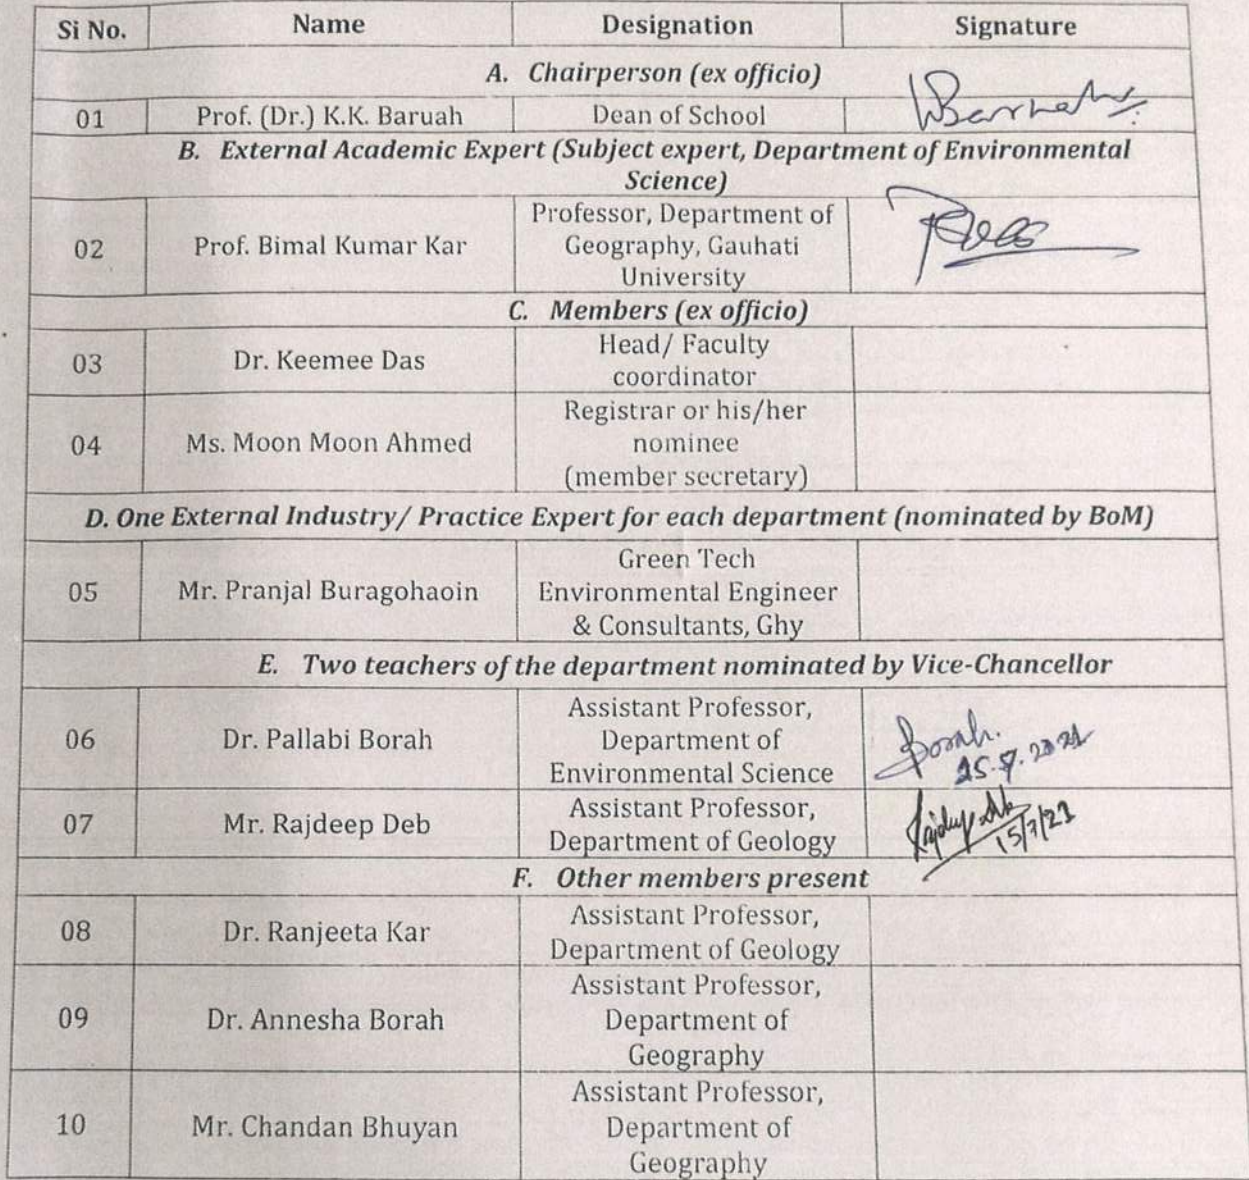 Si No. Name Designation Signature
A. Chairperson (ex officio)
01 Prof. (Dr.) K.K. Baruah Dean of School
B. External Academic Expert (Subject expert, Department of Environmental
Science)
02 Prof. Bimal Kumar Kar Professor, Department of
Geography, Gauhati
University
C. Members (ex officio)
03 Dr. Keemee Das Head/ Faculty
coordinator
04 Ms. Moon Moon Ahmed Registrar or his/her
nominee
(member secretary)
D. One External Industry/ Practice Expert for each department (nominated by BoM)
05 Mr. Pranjal Buragohaoin Green Tech
Environmental Engineer
& Consultants, Ghy
E. Two teachers of the department nominated by Vice-Chancellor
06 Dr. Pallabi Borah Assistant Professor,
Department of
Environmental Science
Borah.
07 Mr. Rajdeep Deb Assistant Professor,
Department of Geology
15/7/21
F. Other members present
08 Dr. Ranjeeta Kar Assistant Professor,
Department of Geology
09 Dr. Annesha Borah Assistant Professor,
Department of
Geography
10 Mr. Chandan Bhuyan Assistant Professor,
Department of
Geography